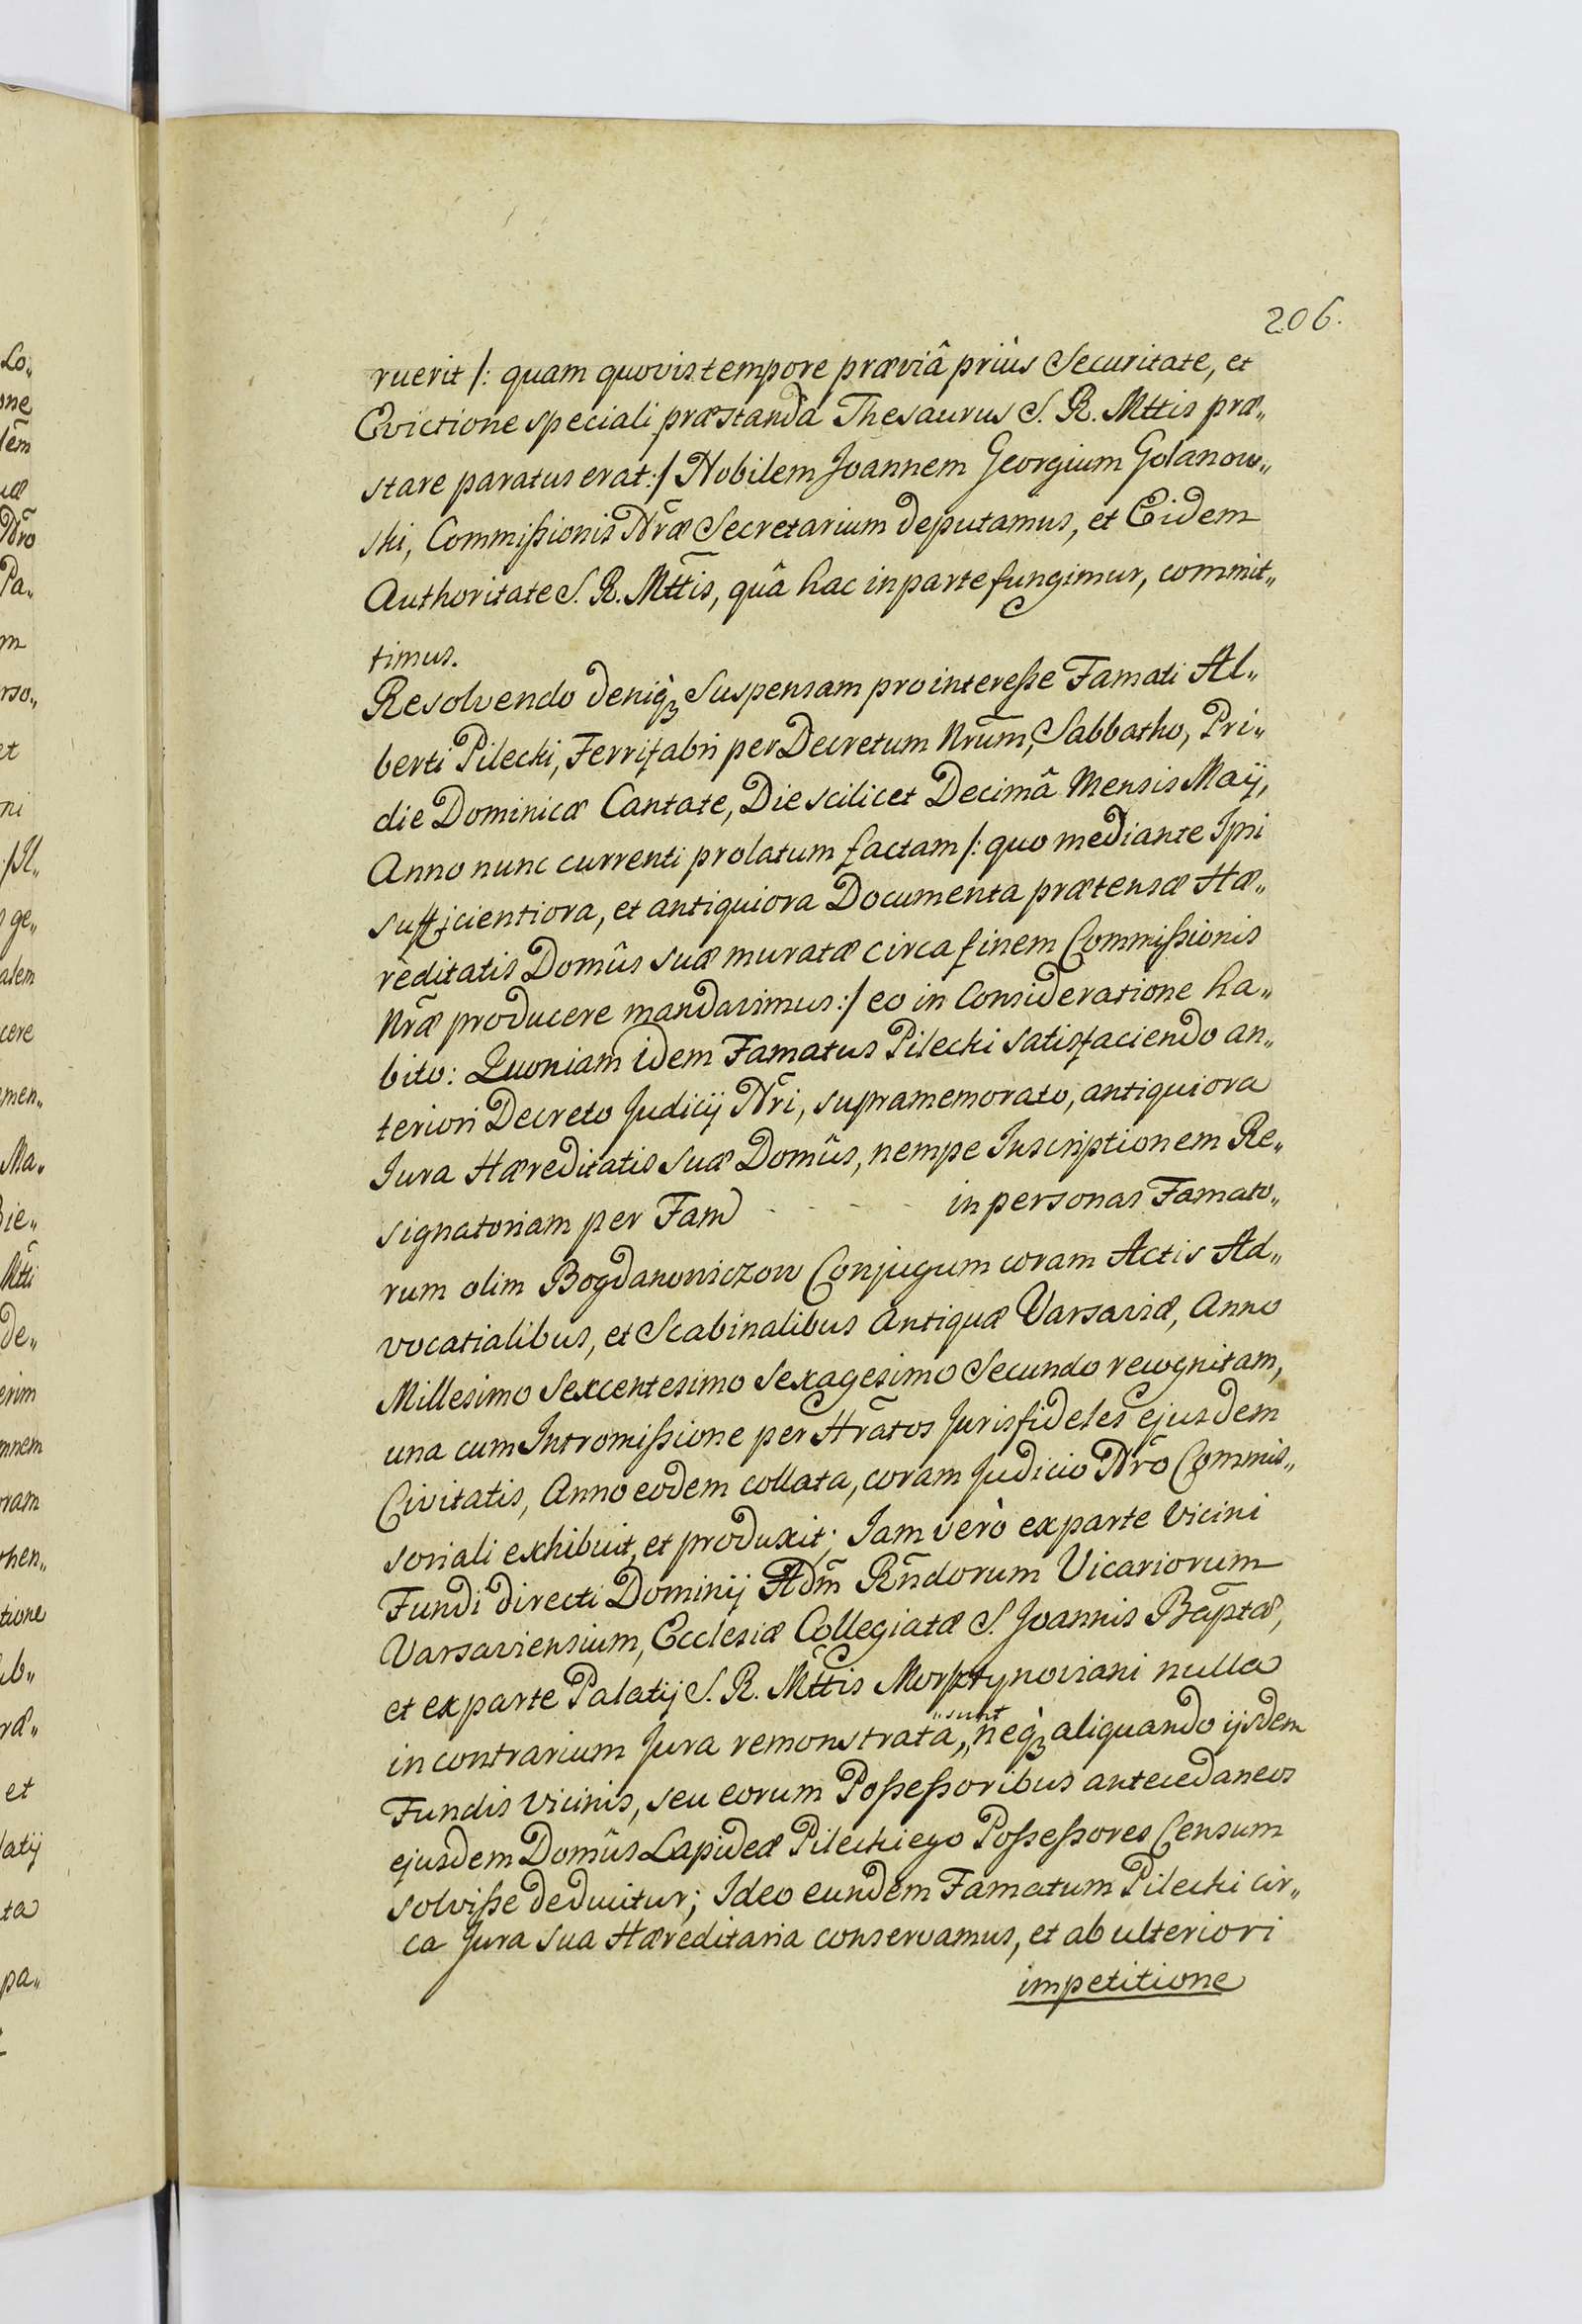 206.
ruerit /: quam quovis tempore præviâ priùs Securitate, et
Evictione speciali præstandâ Thesaurus S. R. Mttis præ„
stare paratus erat :/ Nobilem Joannem Georgium Golanow„
ski, Commißionis Nr̃æ Secretarium deputamus, et Eidem
Authoritate S. R. Mttis, quâ hac in parte fungimur, commit„
timus.
Resolvendo deniqꝫ Suspensam pro intereße Famati Al„
berti Pilecki, Ferrifabri per Decretum Nrũm, Sabbatho, Pri„
die Dominicæ Cantate, Die scilicet Decimâ Mensis Maij,
Anno nunc currenti prolatum factam /: quo mediante Ipsi
sufficientiora, et antiquiora Documenta prætensæ Hæ„
reditatis Domûs suæ muratæ circa finem Commißionis
Nr̃æ producere mandavimus :/ eo in Consideratione ha„
bito: Quoniam idem Famatus Pilecki satisfaciendo an„
teriori Decreto Judicij Nr̃i, supramemorato, antiquiora
Jura Hæreditatis suæ Domûs, nempe Inscriptionem Re„
signatoriam per Fam - - - - in personas Famato„
rum olim Bogdanowiczow Conjugum coram Actis Ad„
vocatialibus, et Scabinalibus Antiquæ Varsaviæ, Anno
Millesimo Sexcentesimo Sexagesimo Secundo recognitam,
una cum Intromißione per Hr̃atos Jurisfideles ejusdem
Civitatis, Anno eodem collata, coram Judicio Nr̃o Commis„
soriali exhibuit, et produxit; Jam verò ex parte Vicini
Fundi directi Dominij Adm̃ Rñdorum Vicariorum
Varsaviensium, Ecclesiæ Collegiatæ S. Joannis Bap̃tæ,
et ex parte Palatij S. R. Mttis Morsztynoviani nulla
„sunt
in contrarium Jura remonstrata,„ neqꝫ aliquando ijsdem
Fundis vicinis, seu eorum Poßeßoribus antecedaneos
ejusdem Domûs Lapideæ Pileckiego Poßeßores Censum
solviße deducitur; Ideo eundem Famatum Pilecki cir„
ca Jura sua Hæreditaria conservamus, et ab ulteriori
impetitione